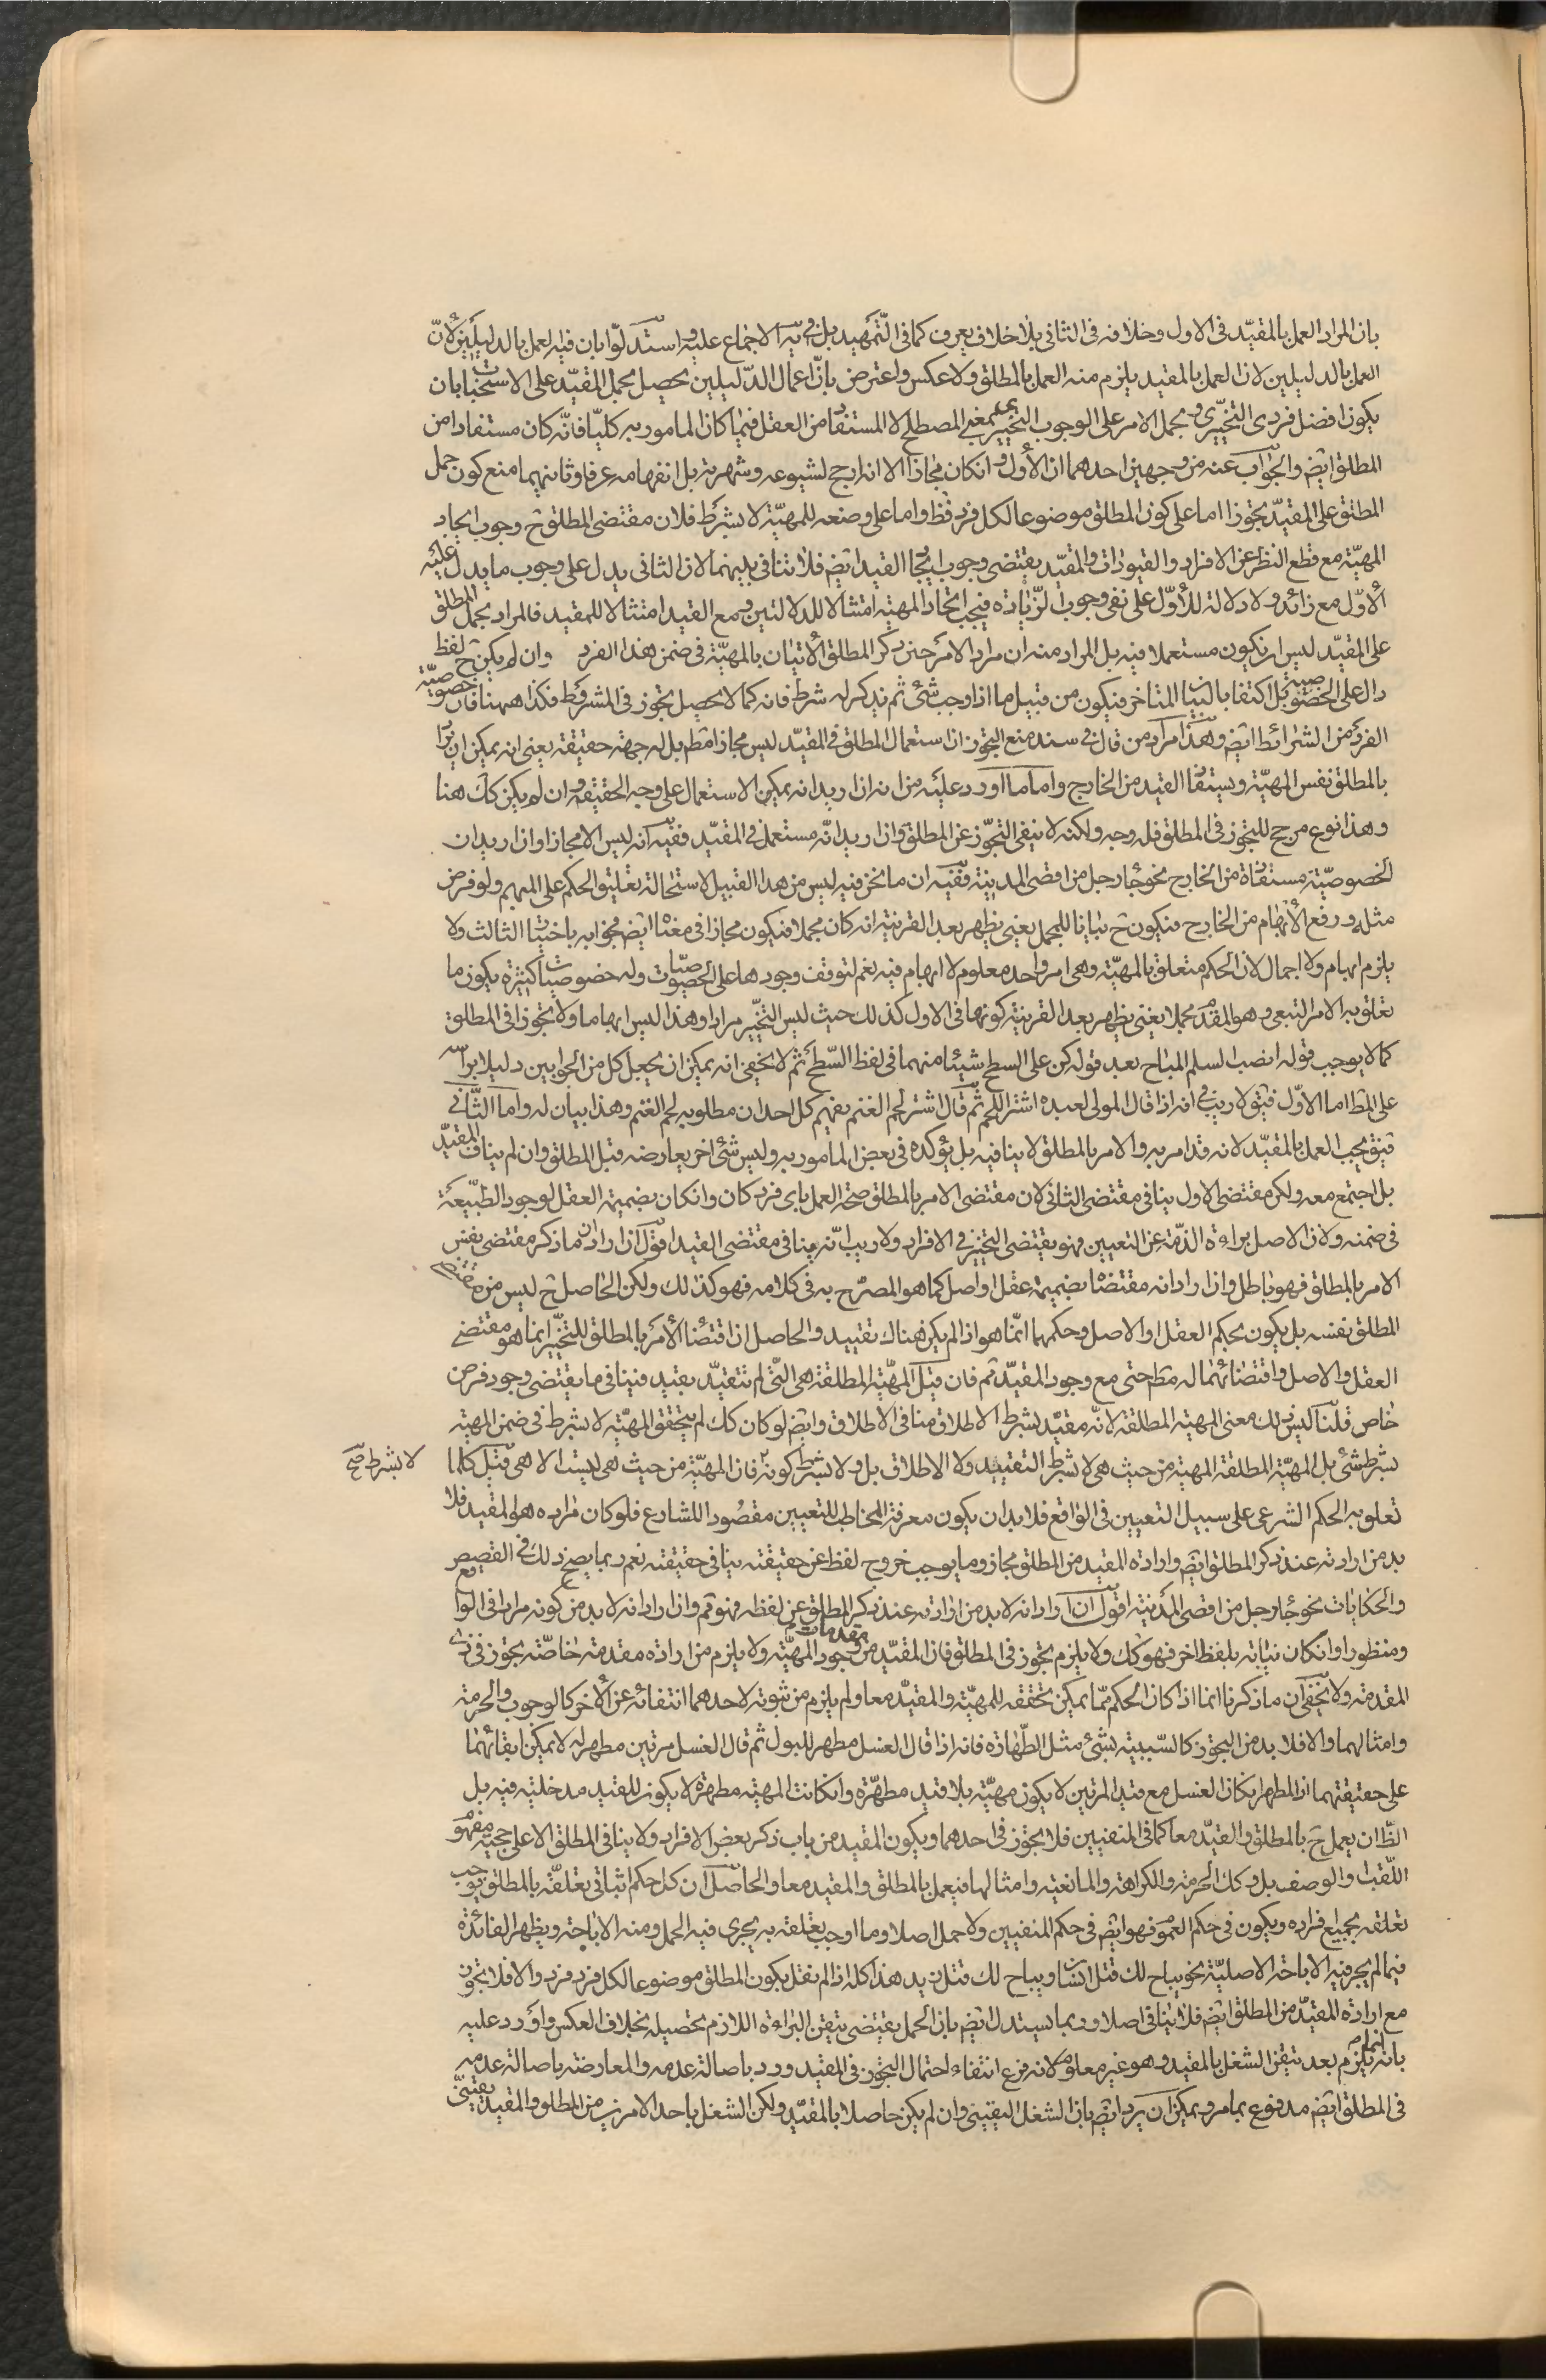 بان المراد العمل بالمقيّد فى الاول وخلافه فى الثانى بلا خلاف يعرف كما فى التّمهيد بل فى يه الاجماع عليه واستدلّوا بان فيه العمل بالدليلين لانّ
العمل بالدليلين لان العمل بالمقيد يلزم منه العمل بالمطلق ولا عكس واعترض بانّ اعمال الدّليلين يحصل بحمل المقيّد على الاستحباب بان
يكون افضل فردى التخيّرى وبحمل الامر على الوجوب التخييرى بمعنى المصطلح لا المستفاد من العقل فيما كان المامور به كليّا فانّه كان مستفادا من
المطلق ايضً والجواب عنه من وجهين احدهما ان الأول وانكان مجازا الا انه ارجح لشيوعه وشهرته بل انفهامه عرفا وثانيهما منع كون حمل
المطلق على المقيّد تجوزا اما على كون المطلق موضوعا لكل فرد فظ واما على وضعه للمهيّة لا بشرط فلان مقتضى المطلق ح وجوب ايجاد
المهيّة مع قطع النظر عن الافراد والقيودات والمقيّد يقتضى وجوب ايجاد القيد ايضً فلا تنافى بينهما لان الثانى يدل على وجوب ما يدل عليه
الأوّل مع زائد ولا دلالة للأوّل على نفى وجوب الزّيادة فيجب ايجاد المهية امتثالا للدلالتين ومع القيد امتثالا للمقيد فالمراد بحمل المطلق
على المقيّد ليس ان يكون مستعملا فيه بل المراد منه ان مراد الامر حين ذكر المطلق الأتيان بالمهيّة فى ضمن هذا الفرد وان لم يكن ح لفظ
دال على الخصوصيّة بل اكتفا بالبيان المتاخر فيكون من قبيل ما اذا وجب شئ ثم يذكر له شرط فانه كما لا يحصل تجوز فى المشروط فكذا ههنا فان خصوصيّة
الفرد من الشرائط ايضً وهذا مراد من قال فى سند منع التجوز ان استعمال المطلق فى المقيّد ليس مجازا مطم بل له جهة حقيقة يعنى انه يمكن ان يراد
بالمطلق نفس المهيّة ويستفاد القيد من الخارج واما ما اورد عليه من انه ان اريد انه يمكن الاستعمال على وجه الحقيقة وان لم يكن كك هنا
وهذا نوع مرجح للتجوز فى المطلق فله وجه ولكنه لا ينفى التجوّز عن المطلق وان اريد انّه مستعمل فى المقيّد ففيه انه ليس الا مجازا وان اريد ان
الخصوصيّة مستفادة من الخارج نحو جاء رجل من اقصى المدينة ففيه ان ما نحن فيه ليس من هذا القبيل لاستحالة تعليق الحكم على المبهم ولو فرض
مثله ورفع الأبهام من الخارج فيكون ح بيانا للمجمل يعنى يظهر بعد القرينة انه كان مجملا فيكون مجازا فى معناه ايضً فجوابه باختيار الثالث ولا
يلزم ابهام ولا اجمال لان الحكم متعلق بالمهيّة وهى امر واحد معلوم لا ابهام فيه نعم لتوقف وجودها على الخصوصيّات وله خصوصيات كثيرة يكون ما
تعلق به الامر التبعى وهو المقدمة مجملا يعنى يظهر بعد القرينة كونها فى الاول كذلك حيث ليس التخيّر مرادا وهذا ليس ابهاما ولا تجوزا فى المطلق
كما لا يوجب قوله انصب السلم المباح بعد قوله كن على السطح شيئا منهما فى لفظ السّطح ثم لا يخفى انه يمكن ان يجعل كل من الجوابين دليلا براسه
على المط اما الاوّل فبقو لا ريب فى انه اذا قال المولى لعبده اشتر اللحم ثم قال اشتر لحم الغنم يفهم كل احد ان مطلوبه لحم الغنم وهذا بيان له واما الثّانى
فبق يجب العمل بالمقيّد لانه قد امر به والامر بالمطلق لا ينافيه بل يؤكده فى بعض المامور به وليس شئ اخر يعارضه قبل المطلق وان لم يناف المقيّد
بل اجتمع معه ولكن مقتضى الاول ينافى مقتضى الثانى لان مقتضى الامر بالمطلق صحة العمل باى فرد كان وانكان بضميمة العقل لوجود الطّبيعة
فى ضمنه ولان الاصل براءة الذمّة عن التعيين فهو يقتضى التخيير فى الافراد ولا ريب انّه ينافى مقتضى القيد اقول ان اراد ان ما ذكر مقتضى نفس
الامر بالمطلق فهو باطل وان اراد انه مقتضاه بضميمة عقل او اصل كما هو المصرّح به فى كلامه فهو كذلك ولكن الحاصل ح ليس من مقتضى
المطلق نفسه بل يكون بحكم العقل او الاصل وحكمهما انّما هو اذا لم يكن هناك تقييد والحاصل ان اقتضاء الأمر بالمطلق للتخيّر انما هو مقتضى
العقل والاصل واقتضائهما له مطم حتى مع وجود المقيّد ثم فان قيل المهيّة المطلقة هى الّتى لم تتقيّد بقيد فينافى ما يقتضى وجود فرض
خاص قلنا ليس ذلك معنى المهية المطلقة لانّه مقيّد بشرط الاطلاق منافى الاطلاق وايضً لو كان كك لم يتحقق المهيّة لا بشرط فى ضمن المهية
بشرط شئ بل المهيّة المطلقة المهية من حيث هى لا بشرط التقييد ولا الاطلاق بل ولا بشرط كونه فان المهيّة من حيث هى ليست الا هى قيل كلما
لا بشرط صح
تعلق به الحكم الشرعى على سبيل التعيين فى الواقع فلا بد ان يكون معرفة المخاطب للتعيين مقصودا للشارع فلو كان مراده هو المقيد فلا
بد من ارادته عند ذكر المطلق ايضً وارادة المقيد من المطلق مجاز وما يوجب خروج لفظ عن حقيقته ينافى حقيقته نعم ربما يصح ذلك فى القصص
والحكايات نحو جاء رجل من اقصى المدينة اقول ان اراد انه لا بد من ارادته عند ذكر المطلق عن لفظه فهو ثم وان اراد انه لا بد من كونه مرادا فى الواقع
ومنظورا وانكان بيانه بلفظ اخر فهو كك ولا يلزم تجوز فى المطلق فان المقيّد من مقدمات وجود المهيّة ولا يلزم من ارادة مقدمة خاصّة تجوز فى ذى
المقدمة ولا يخفى ان ما ذكرنا انما اذا كان الحكم ممّا يمكن تحققه للمهيّة والمقيّد معا ولم يلزم من ثبوته لاحدهما انتفائه عن الأخر كالوجوب والحرمة
وامثالهما والا فلا بد من التجوز كالسّببية بشئ مثل الطّهارة فانه اذا قال الغسل مطهر للبول ثم قال الغسل مرتين مطهر له لا يمكن ابقائهما
على حقيقتهما اذ المطهر ان كان الغسل مع قيد المرتين لا يكون مهيّة بلا قيد مطهّرة وانكانت المهية مطهرة لا يكون للقيد مدخلية فيه بل
الظّ ان يعمل ح بالمطلق والقيّد معا كما فى المنفيين فلا تجوز فى احدهما ويكون المقيد من باب ذكر بعض الافراد ولا ينافى المطلق الا على حجية مفهوم
اللّقب والوصف بل وكك الحرمة والكراهة والمانعية وامثالها فيعمل بالمطلق والمقيد معا والحاصل ان كل حكم اثباتى تعلّقه بالمطلق يوجب
تعلقه بجميع افراده ويكون فى حكم العموم فهو ايضً فى حكم المنفيين ولا حمل اصلا وما اوجب تعلقه به يجرى فيه الحمل ومنه الاباحة ويظهر الفائدة
فيما لم يجر فيه الاباحة الاصليّة نحو يباح لك قتل انسان ويباح لك قتل زيد هذا كله اذا لم نقل بكون المطلق موضوعا لكل فرد فرد والا فلا تجوز
مع ارادة المقيّد من المطلق ايضً فلا ينافى اصلا وربما يستدل ايضً بان الحمل يقتضى تيقن البراءة اللازم تحصيله بخلاف العكس واورد عليه
بانه انما يلزم بعد تيقن الشغل بالمقيد وهو غير معلوم لانه فرع انتفاء احتمال التجوز فى المقيد ورد باصالة عدمه والمعارضة باصالة عدمه
فى المطلق ايضً مدفوع بما مر ويمكن ان يرد ايضً بان الشغل اليقينى وان لم يكن حاصلا بالمقيّد ولكن الشغل باحد الامرين من المطلق والمقيد يقينىّ